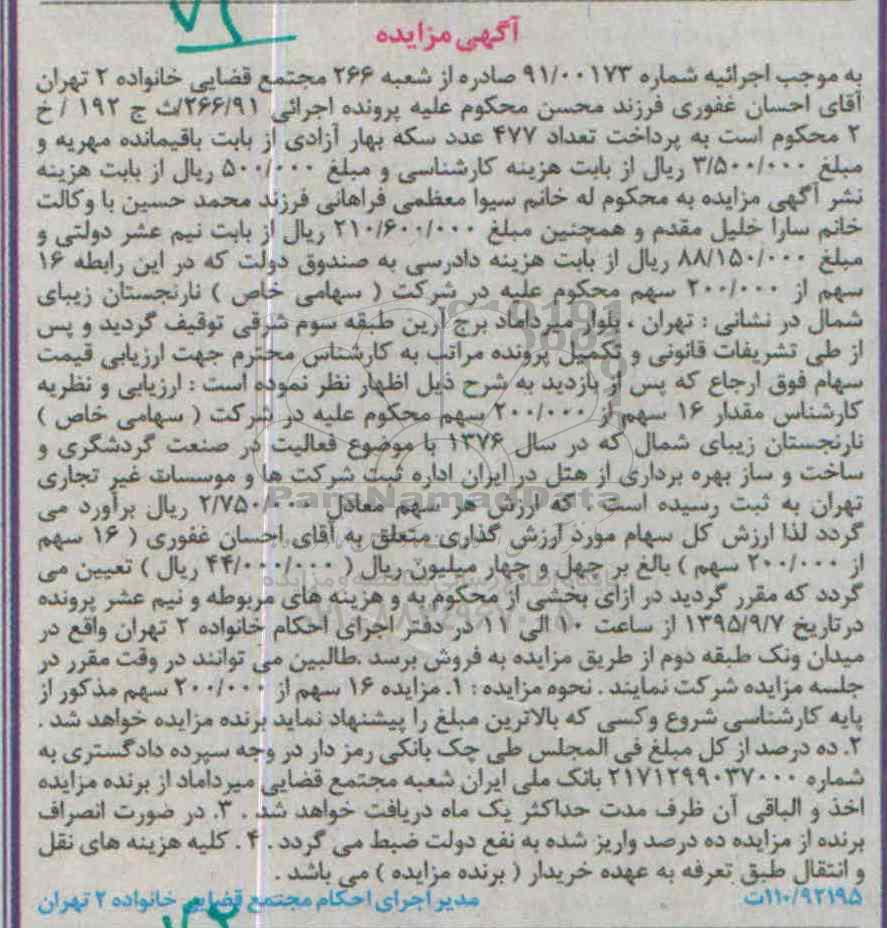 آگهی مزایده
به موجب اجرائیه شماره ۹۱/۰۰۱۷۳ صادره از شعبه ۲۶۶ مجتمع قضایی خانواده ۲ تهران
آقای احسان غفوری فرزند محسن محکوم علیه پرونده اجرائی ۲۶۶/۹۱/ث ج ۱۹۲ / خ
۲ محکوم است به پرداخت تعداد ۴۷۷ عدد سکه بهار آزادی از بابت باقیمانده مهریه و
مبلغ ۳/۵۰۰/۰۰۰ ریال از بابت هزینه کارشناسی و مبلغ ۵۰۰/۰۰۰ ریال از بابت هزینه
نشر آگهی مزایده به محکوم له خانم سیوا معظمی فراهانی فرزند محمد حسین با وکالت
خانم سارا خلیل مقدم و همچنین مبلغ ۲۱۰/۶۰۰/۰۰۰ ریال از بابت نیم عشر دولتی و
مبلغ ۸۸/۱۵۰/۰۰۰ ریال از بابت هزینه دادرسی به صندوق دولت که در این رابطه ۱۶
سهم از ۲۰۰/۰۰۰ سهم محکوم علیه در شرکت ( سهامی خاص ) نارنجستان زیبای
شمال در نشانی : تهران ، بلوار میرداماد برج آرین طبقه سوم شرقی توقیف گردید و پس
از طی تشریفات قانونی و تکمیل پرونده مراتب به کارشناس محترم جهت ارزیابی قیمت
سهام فوق ارجاع که پس از بازدید به شرح ذیل اظهار نظر نموده است : ارزیابی و نظریه
کارشناس مقدار ۱۶ سهم از ۲۰۰/۰۰۰ سهم محکوم علیه در شرکت ( سهامی خاص )
نارنجستان زیبای شمال که در سال ۱۳۷۶ با موضوع فعالیت در صنعت گردشگری و
ساخت و ساز بهره برداری از هتل در ایران اداره ثبت شرکت ها و موسسات غیر تجاری
تهران به ثبت رسیده است . که ارزش هر سهم معادل ۲/۷۵۰/۰۰۰ ریال برآورد می
گردد لذا ارزش کل سهام مورد ارزش گذاری متعلق به آقای احسان غفوری ( ۱۶ سهم
از ۲۰۰/۰۰۰ سهم ) بالغ بر چهل و چهار میلیون ریال ( ۴۴/۰۰۰/۰۰۰ ریال ) تعیین می
گردد که مقرر گردید در ازای بخشی از محکوم به و هزینه های مربوطه و نیم عشر پرونده
درتاریخ ۱۳۹۵/۹/۷ از ساعت ۱۰ الی ۱۱ در دفتر اجرای احکام خانواده ۲ تهران واقع در
میدان ونک طبقه دوم از طریق مزایده به فروش برسد .طالبین می توانند در وقت مقرر در
جلسه مزایده شرکت نمایند . نحوه مزایده : ۱. مزایده ۱۶ سهم از ۲۰۰/۰۰۰ سهم مذکور از
پایه کارشناسی شروع وکسی که بالاترین مبلغ را پیشنهاد نماید برنده مزایده خواهد شد .
۲. ده درصد از کل مبلغ فی المجلس طی چک بانکی رمز دار در وجه سپرده دادگستری به
شماره ۲۱۷۱۲۹۹۰۳۷۰۰۰ بانک ملی ایران شعبه مجتمع قضایی میرداماد از برنده مزایده
اخذ و الباقی آن ظرف مدت حداکثر یک ماه دریافت خواهد شد . ۳. در صورت انصراف
برنده از مزایده ده درصد واریز شده به نفع دولت ضبط می گردد . ۴ . کلیه هزینه های نقل
و انتقال طبق تعرفه به عهده خریدار ( برنده مزایده ) می باشد .
۱۱۰/۹۲۱۹۵ت
مدیر اجرای احکام مجتمع قضایی خانواده ۲ تهران
ParsNamadData